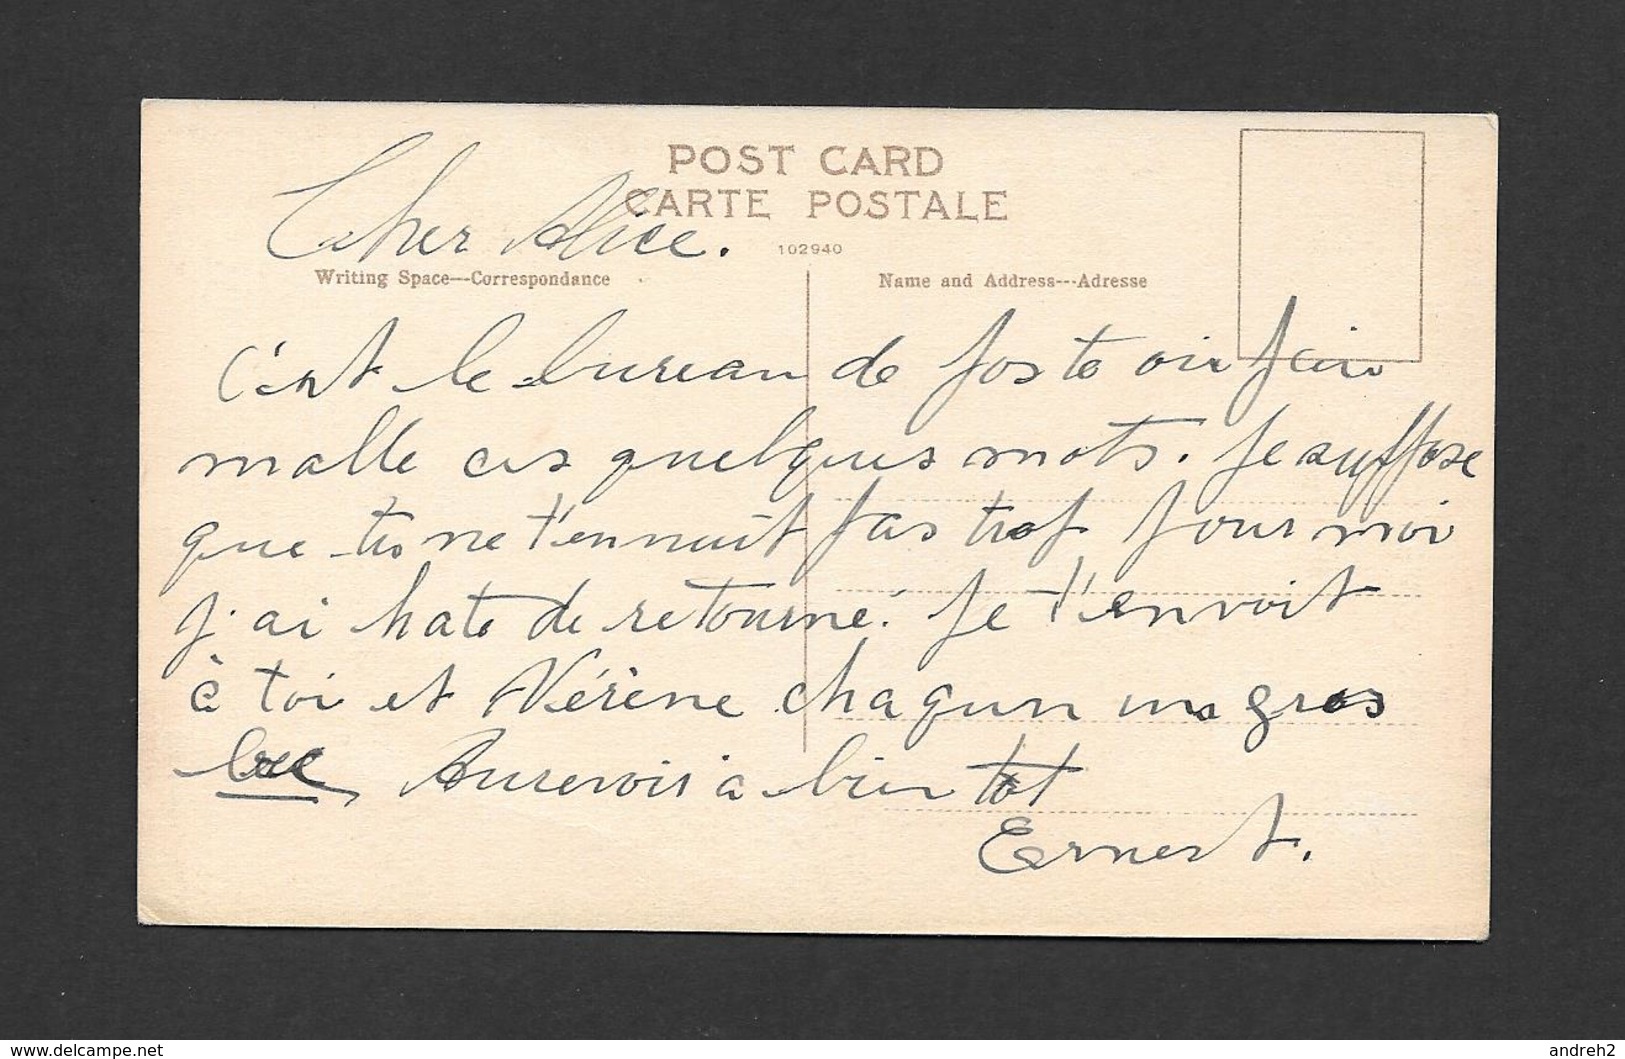 POST CARD
CARTE POSTALE
Cher Alice.
102940
Writing Space---Correspondance
Name and Address---Adresse
C'est le bureau de poste où je
malle ces quelques mots. Je suppose
que tu ne t'ennuit pas trop pour moi
j'ai hate de retourné. Je t'envoit
à toi et Vérène chaqun un gros
bec Aurevoir à bien tôt
Ernest.
delcampe.net
andreh2